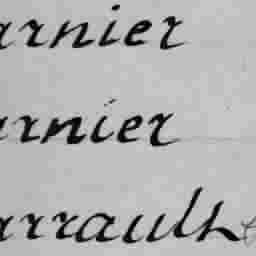 arnier
arnier
arrault